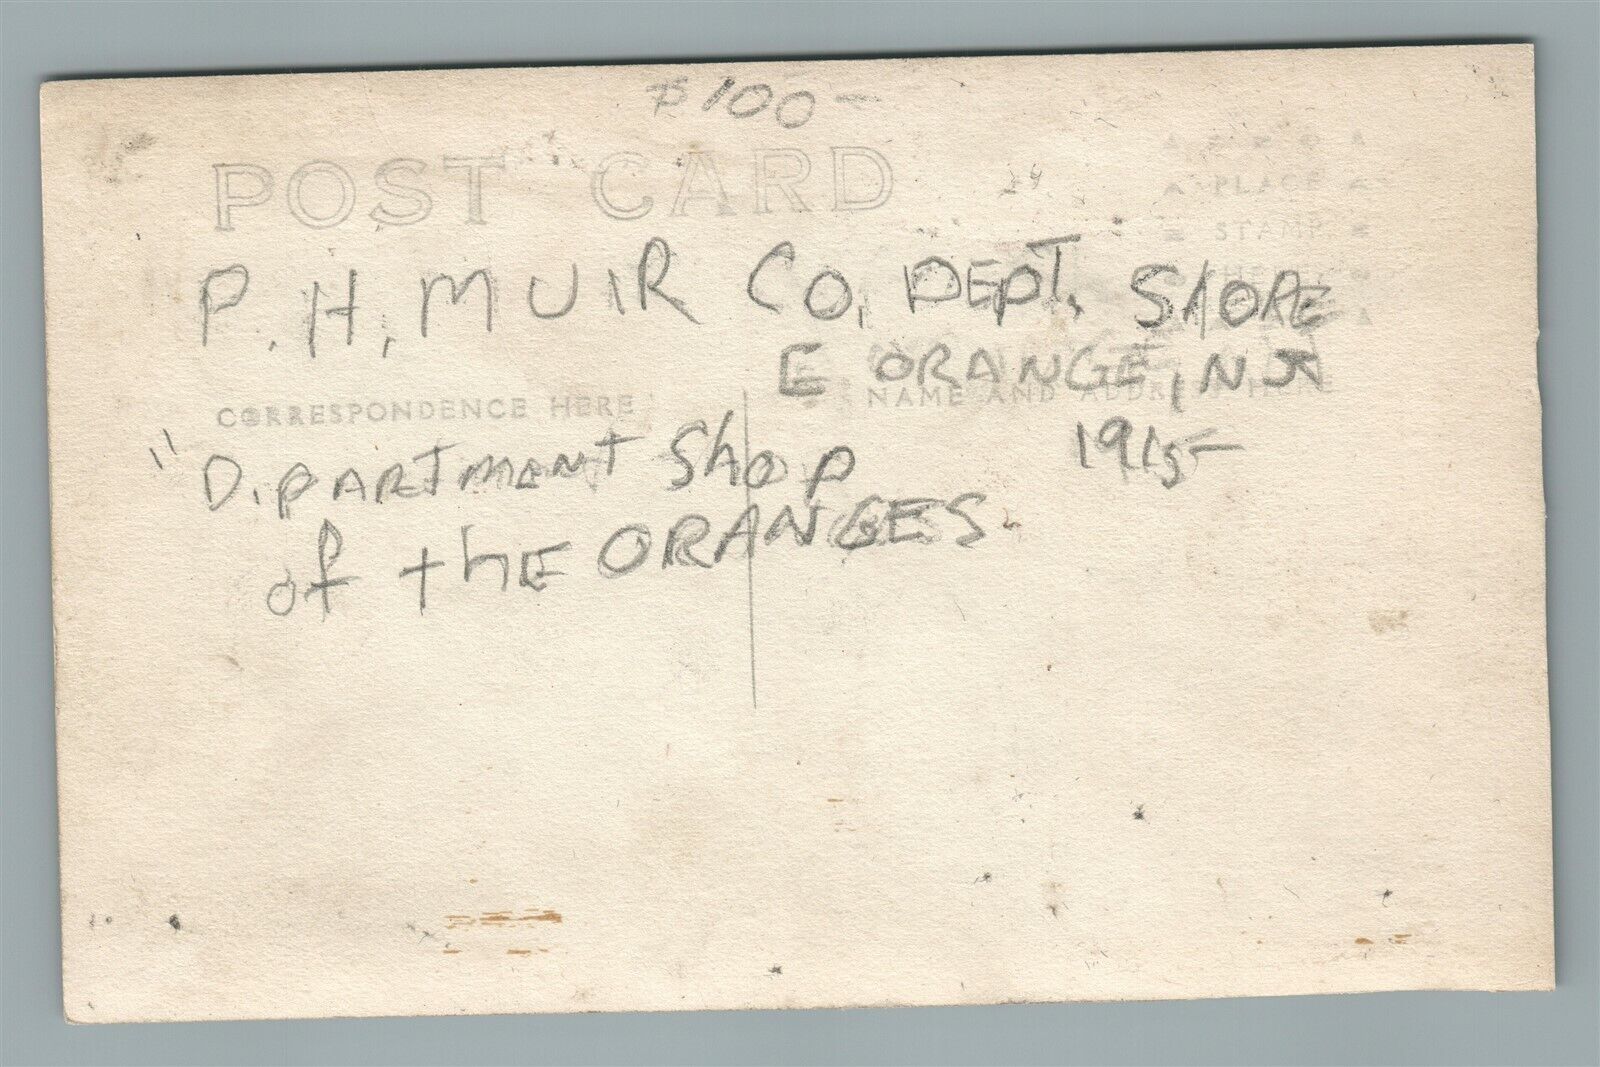 $100-
POST CARD
PLACE
STAMP
HERE
P. H. MUIR CO. DEPT. STORE
E ORANGE, NJ
CORRESPONDENCE HERE
NAME AND ADDRESS HERE
1915-
"D.PARTMENT Shop
of thE ORANGES.